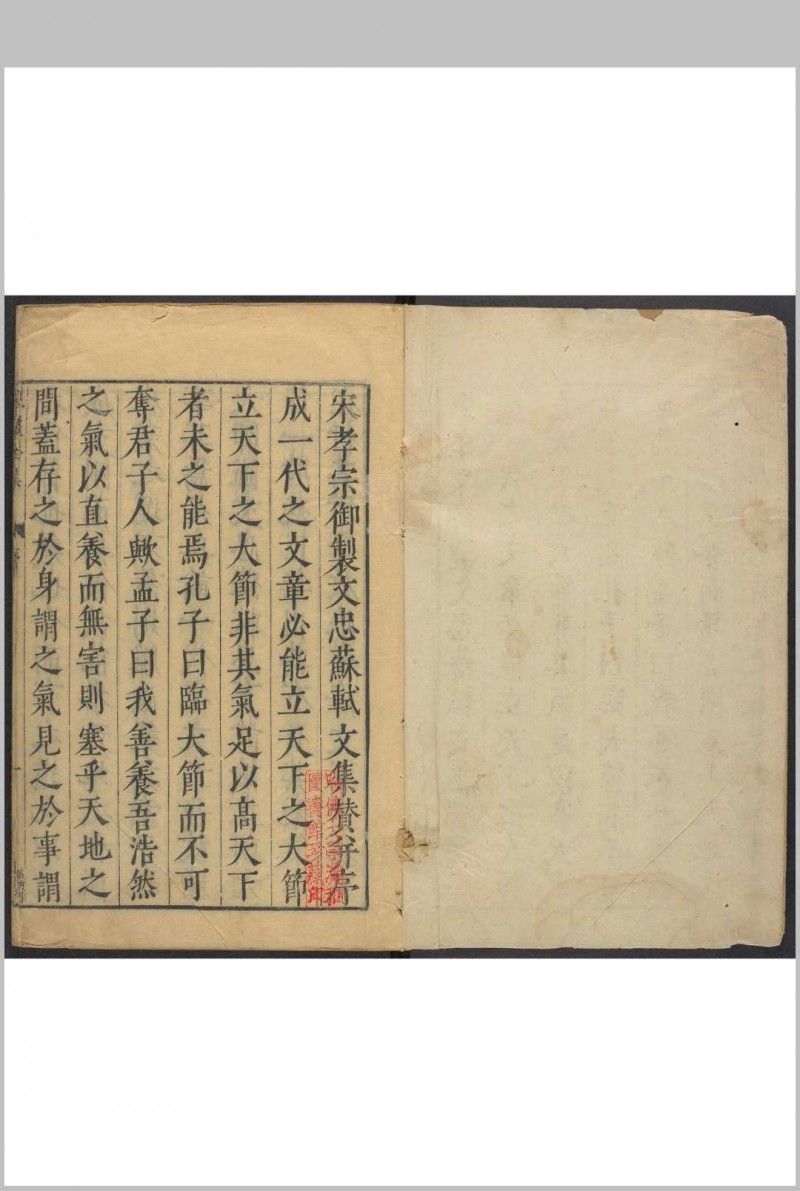 宋孝宗御製文忠蘇軾文集贊并序
成一代之文章必能立天下之大節
立天下之大節非其氣足以髙天下
者未之能焉孔子曰臨大節而不可
奪君子人歟孟子曰我善養吾浩然
之氣以直養而無害則塞乎天地之
間蓋存之於身謂之氣見之於事謂